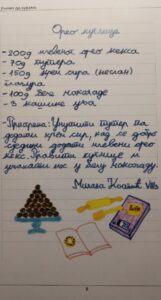 Орео куглице
- 200g млевеног орео кекса
- 70g путера
- 150g крем сира (неслан)
- 100g беле чоколаде
- Припрема: Умутити путер па
додати крем сир, кад се добро
сједини додати млевени орео
кекс. Правити куглице и
умакати их у белу чоколаду